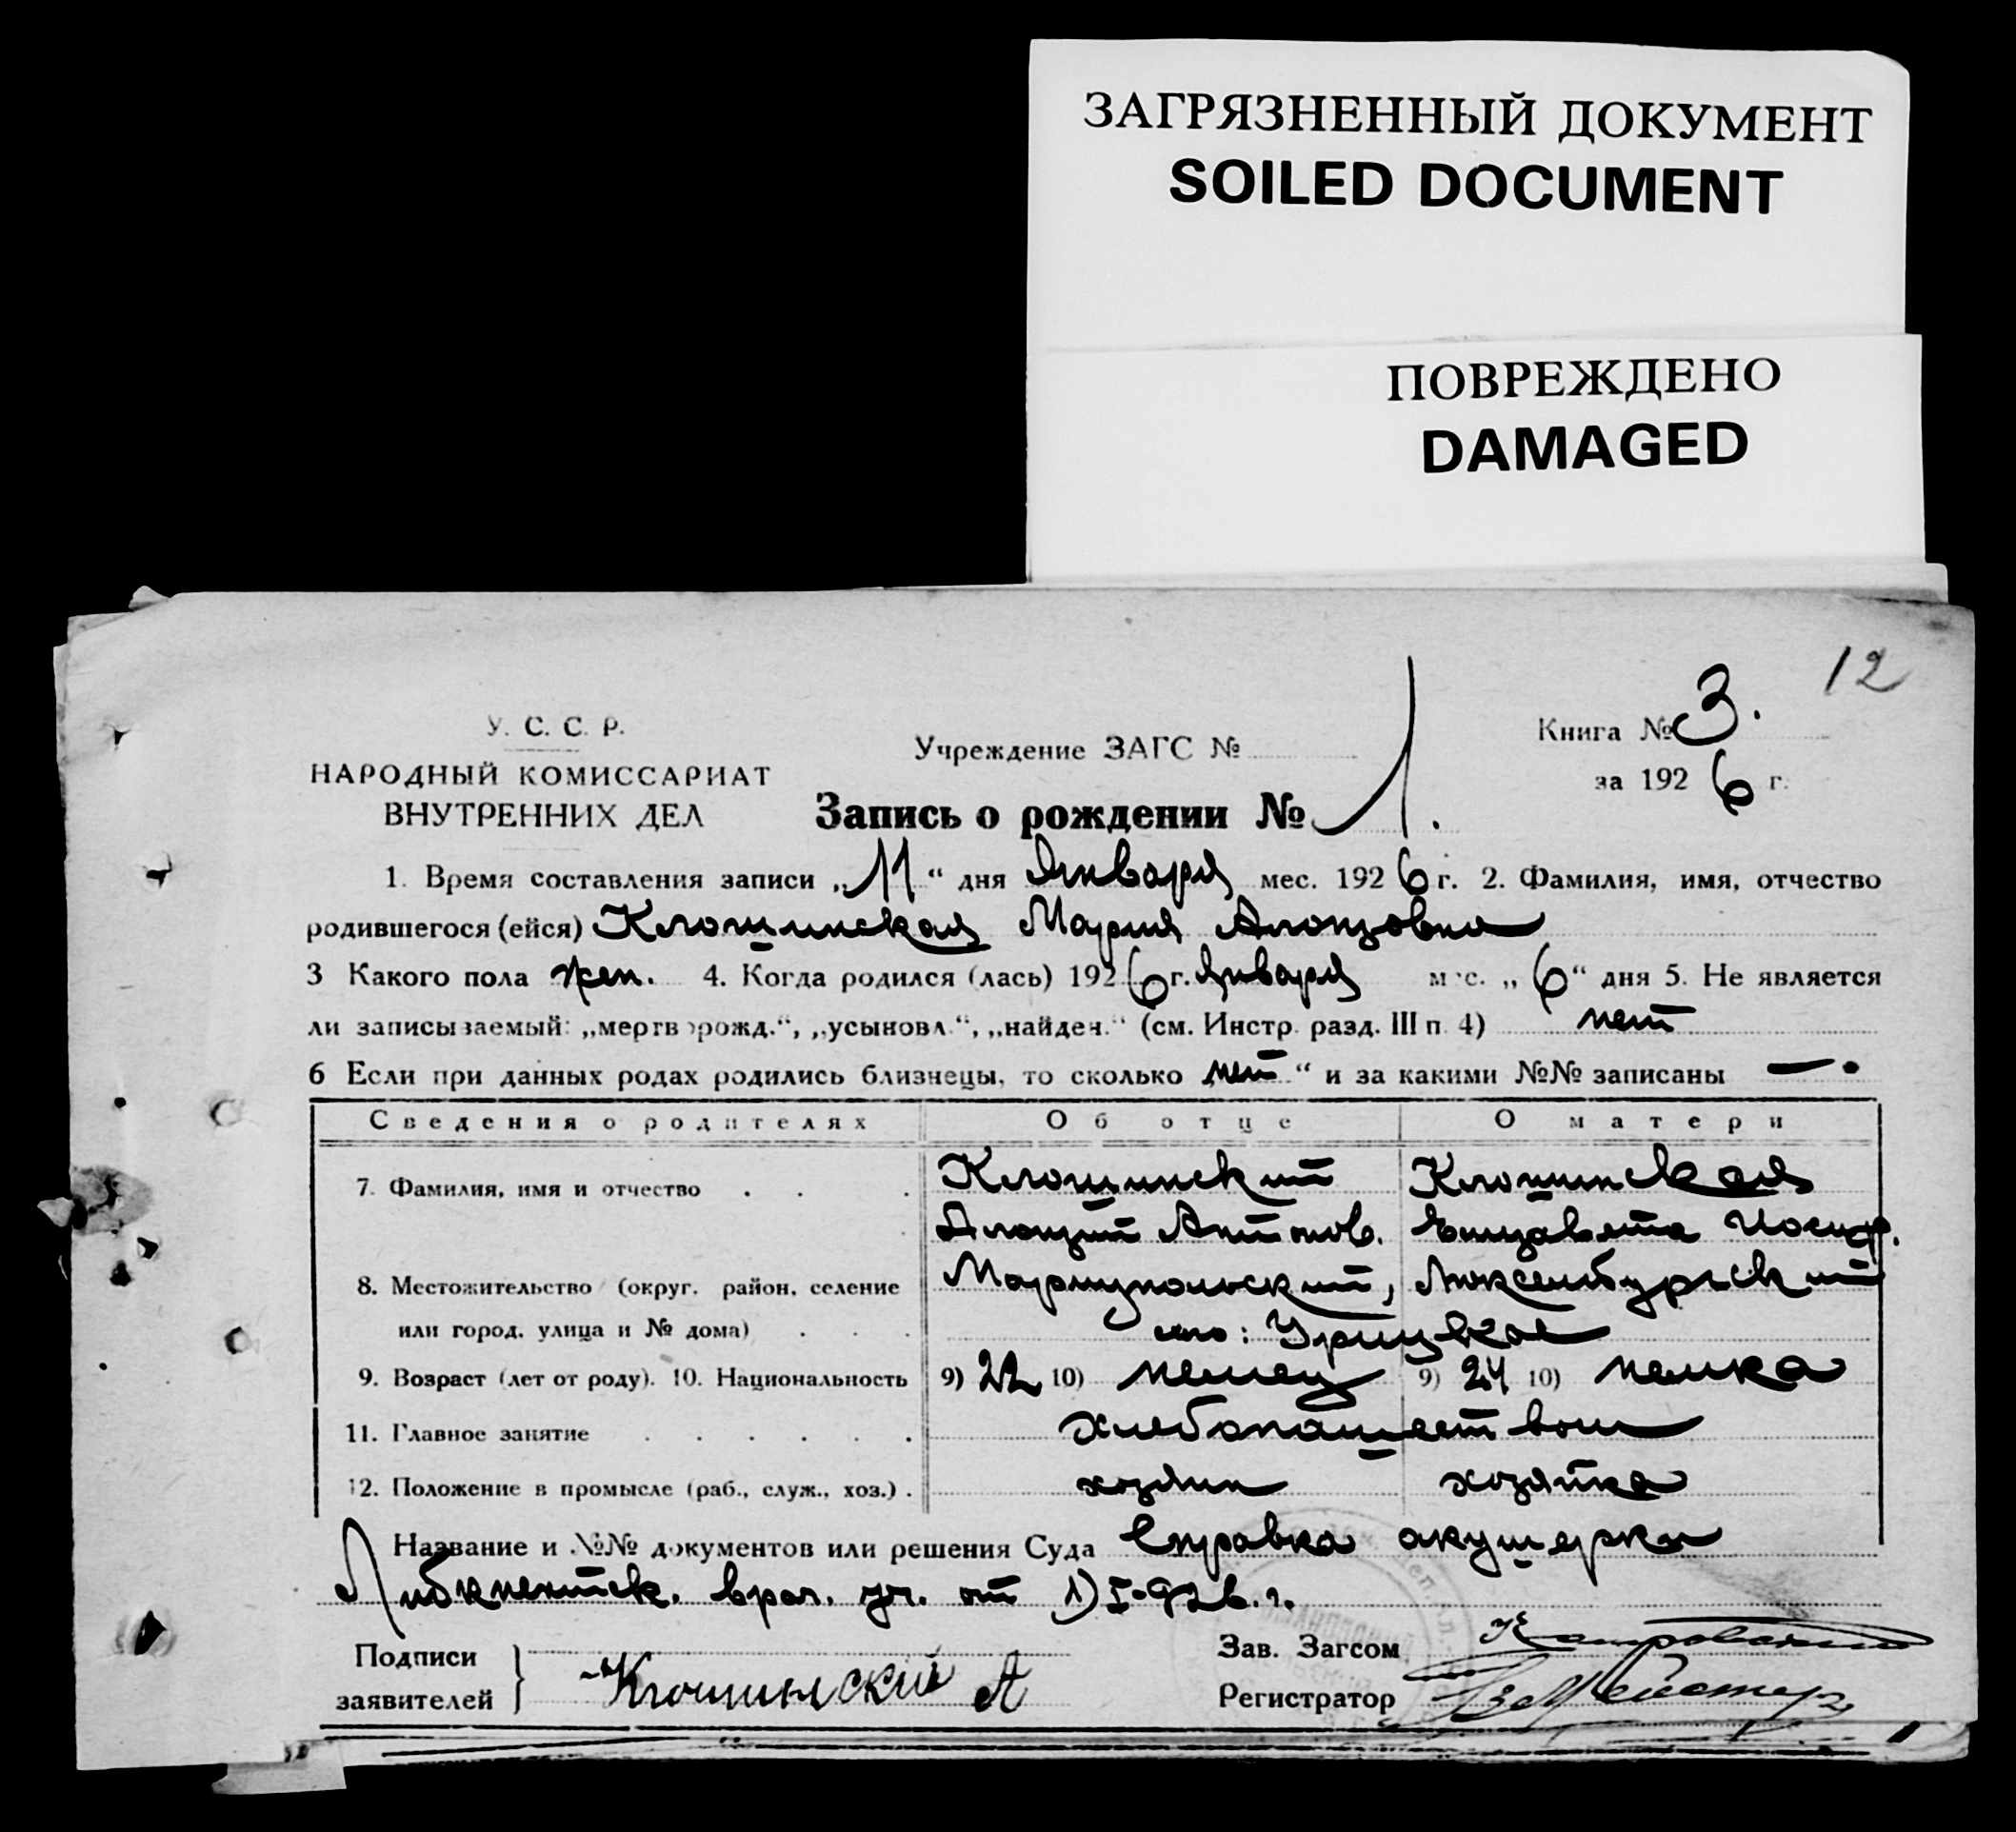 ЗАГРЯЗНЕННЫЙ ДОКУМЕНТ
SOILED DOCUMENT
ПОВРЕЖДЕНО
DAMAGED
12
У. С. С. Р.
НАРОДНЫЙ КОМИССАРИАТ
ВНУТРЕННИХ ДЕЛ
Учреждение ЗАГС №
Книга № 3.
за 1926 г.
Запись о рождении № 1.
1. Время составления записи „11“ дня Января мес. 1926 г. 2. Фамилия, имя, отчество
родившегося (ейся) Клошинская Мария Алоизовна
3 Какого пола жен. 4. Когда родился (лась) 1926 г. Января мес. „6“ дня 5. Не является
ли записываемый: „мертворожд.“, „усыновл.“, „найден.“ (см. Инстр. разд. III п. 4) нет
6 Если при данных родах родились близнецы, то сколько нет “ и за какими №№ записаны —.
Сведения о родителях Об отце О матери
7. Фамилия, имя и отчество . . . Клошинский Клошинская
Алоизий Антонов. Елизавета Иосиф.
8. Местожительство (округ, район, селение Мариупольский, Люксембургский
или город, улица и № дома) . . . Урицкое
9. Возраст (лет от роду). 10. Национальность 9) 22 10) немец 9) 24 10) немка
11. Главное занятие . . . . . . хлебопашеством
12. Положение в промысле (раб., служ., хоз.) . хозяин хозяйка
Название и №№ документов или решения Суда Справка акушерки
Либкнехтск. врач. уч. от
Подписи
заявителей
Клошинский А
Зав. Загсом
Регистратор